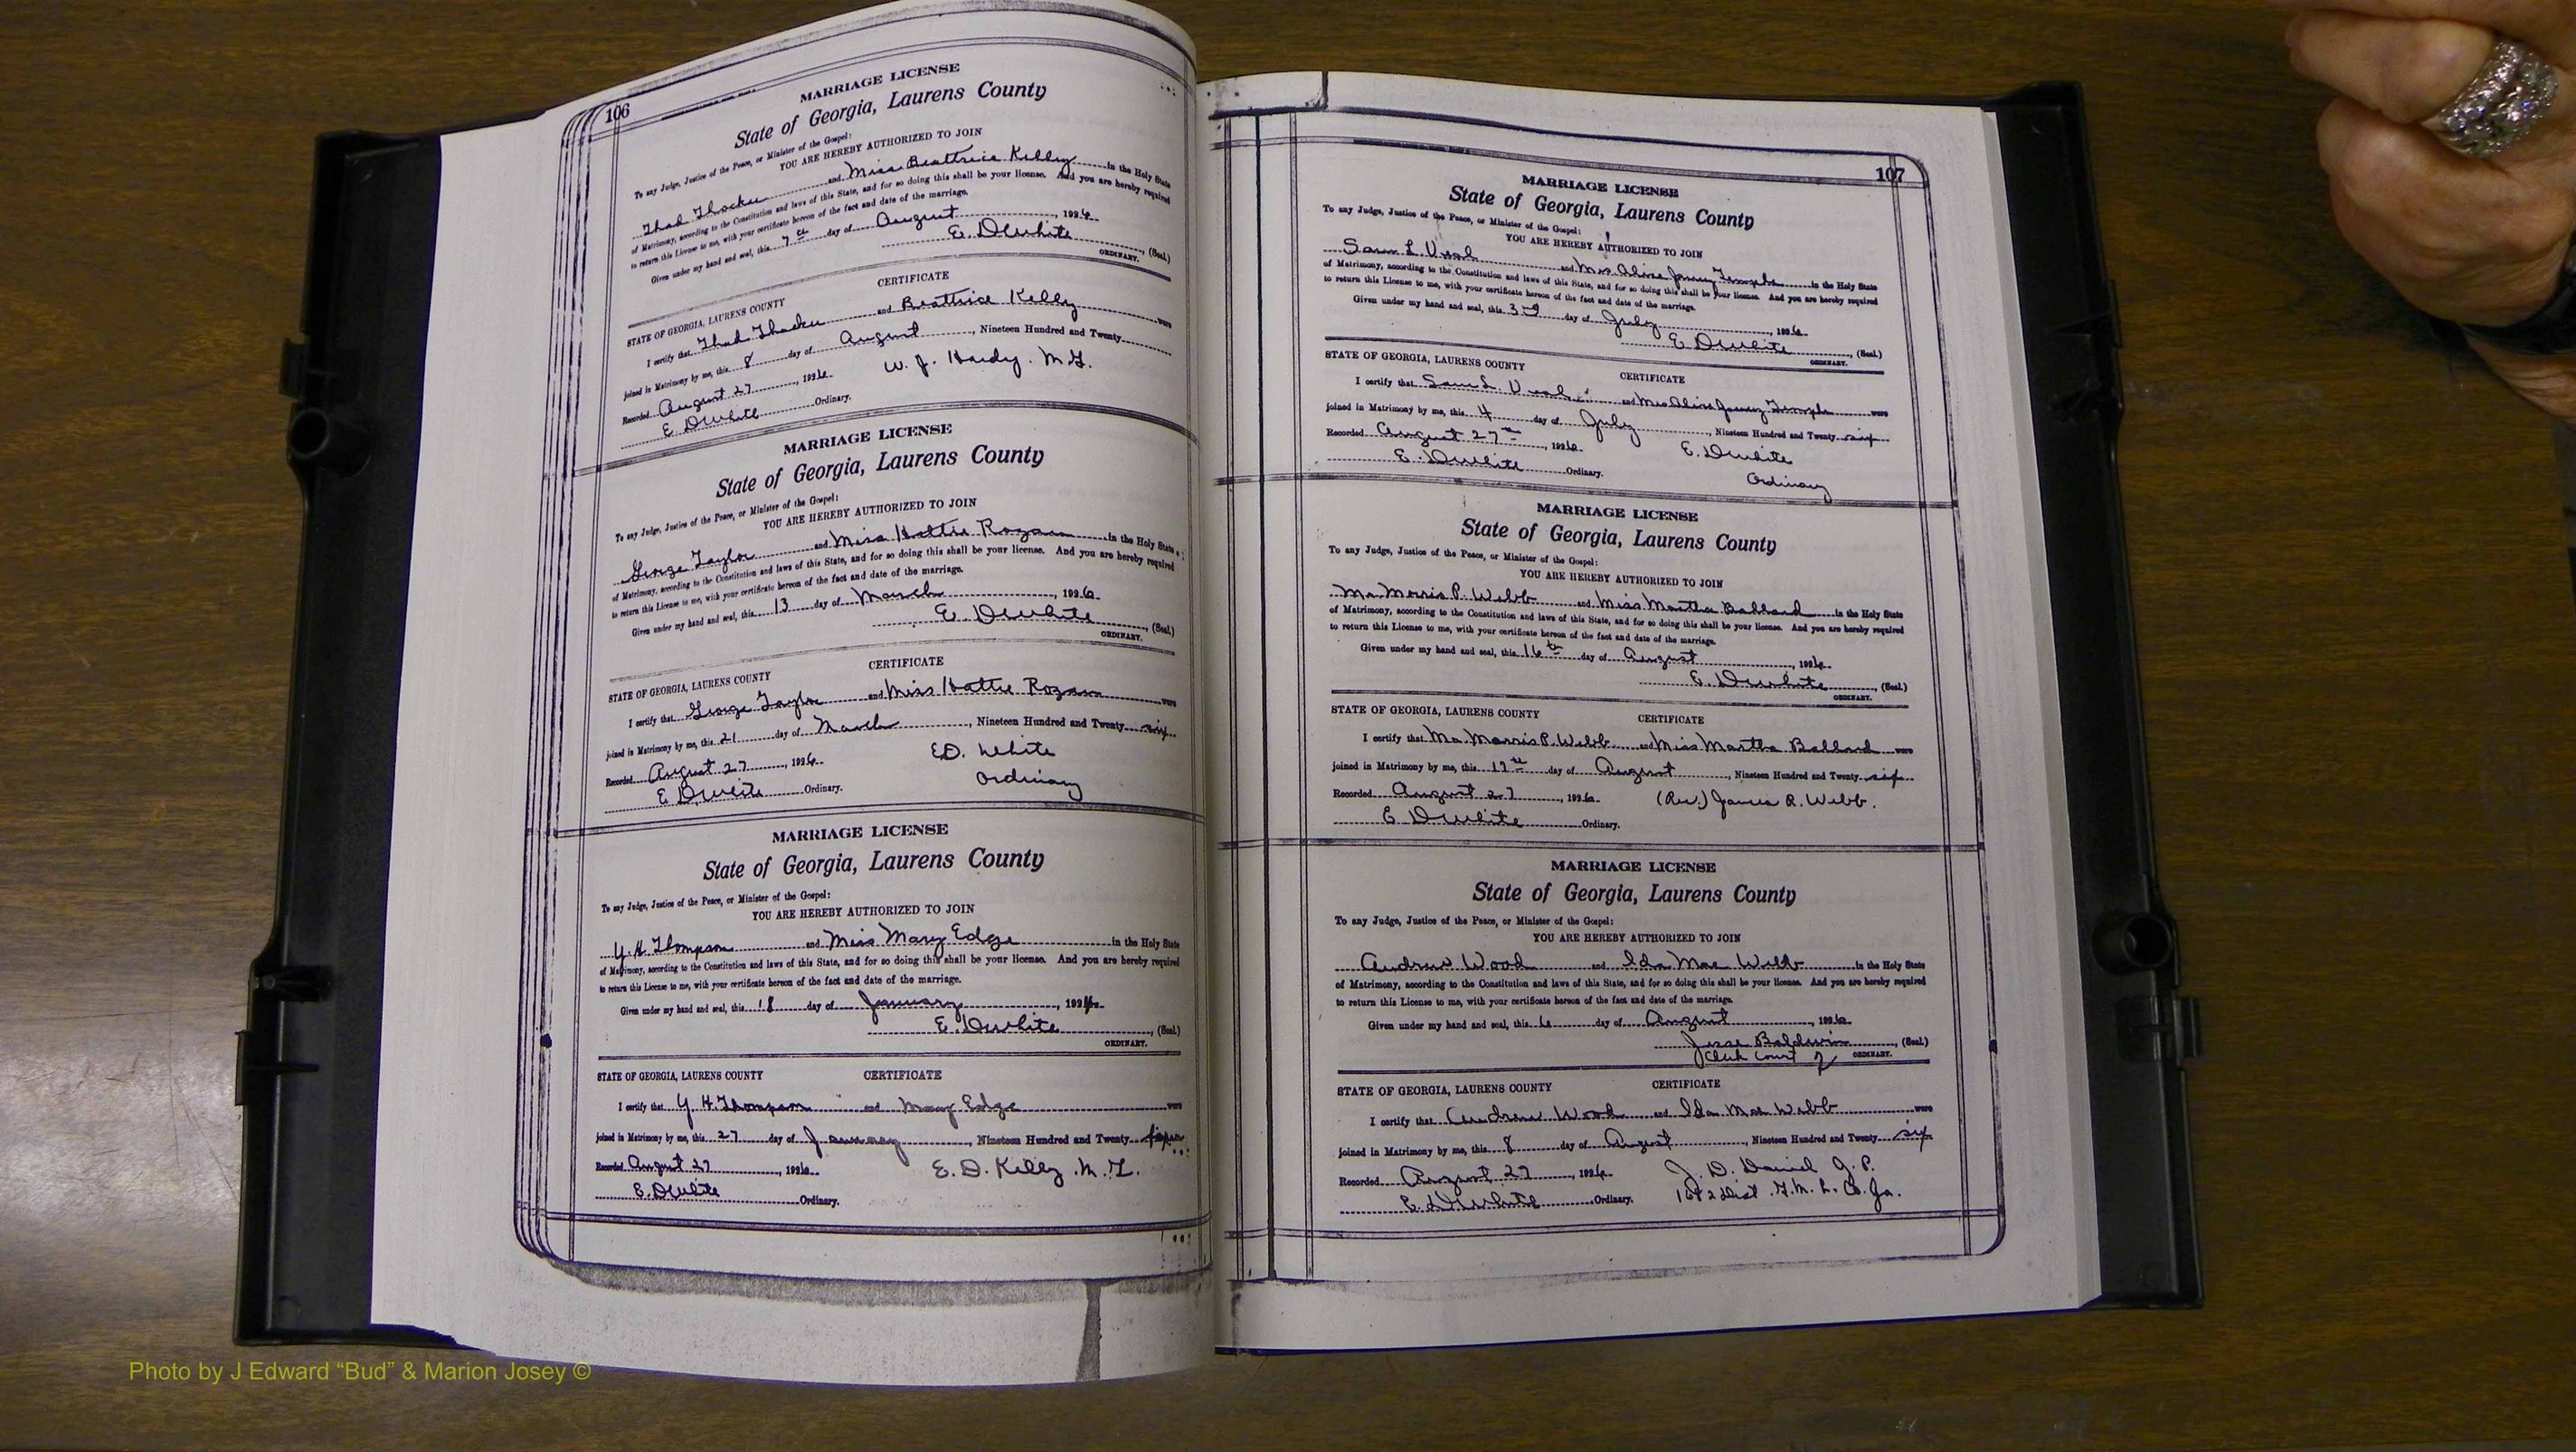 106
MARRIAGE LICENSE
State of Georgia, Laurens County
To any Judge, Justice of the Peace, or Minister of the Gospel:
YOU ARE HEREBY AUTHORIZED TO JOIN
Thad Thacker and Miss Beattrice Kelly in the Holy State
of Matrimony, according to the Constitution and laws of this State, and for so doing this shall be your license. And you are hereby required
to return this License to me, with your certificate hereon of the fact and date of the marriage.
Given under my hand and seal, this 7th day of August, 1926
E. D White, (Seal)
ORDINARY.
CERTIFICATE
STATE OF GEORGIA, LAURENS COUNTY
I certify that Thad Thacker and Beattrice Kelly were
joined in Matrimony by me, this 8 day of August, Nineteen Hundred and Twenty
Recorded August 27, 1926. W. J. Hardy. M.G.
E. D White Ordinary.
MARRIAGE LICENSE
State of Georgia, Laurens County
To any Judge, Justice of the Peace, or Minister of the Gospel:
YOU ARE HEREBY AUTHORIZED TO JOIN
George Taylor and Miss Hattie Rozar in the Holy State
of Matrimony, according to the Constitution and laws of this State, and for so doing this shall be your license. And you are hereby required
to return this License to me, with your certificate hereon of the fact and date of the marriage.
Given under my hand and seal, this 13 day of March, 1926
E. D White, (Seal)
ORDINARY.
CERTIFICATE
STATE OF GEORGIA, LAURENS COUNTY
I certify that George Taylor and Miss Hattie Rozar were
joined in Matrimony by me, this 21 day of March, Nineteen Hundred and Twenty six
Recorded August 27, 1926 E.D. White
E. D White Ordinary. Ordinary
MARRIAGE LICENSE
State of Georgia, Laurens County
To any Judge, Justice of the Peace, or Minister of the Gospel:
YOU ARE HEREBY AUTHORIZED TO JOIN
Y. H. Thompson and Miss Mary Edge in the Holy State
of Matrimony, according to the Constitution and laws of this State, and for so doing this shall be your license. And you are hereby required
to return this License to me, with your certificate hereon of the fact and date of the marriage.
Given under my hand and seal, this 18 day of January, 192
E. D White, (Seal)
ORDINARY.
STATE OF GEORGIA, LAURENS COUNTY CERTIFICATE
I certify that Y. H. Thompson and Mary Edge were
joined in Matrimony by me, this 27 day of January, Nineteen Hundred and Twenty
Recorded August 27, 1926 E. D. Kelly. M. G.
E. D White Ordinary.
107
MARRIAGE LICENSE
State of Georgia, Laurens County
To any Judge, Justice of the Peace, or Minister of the Gospel:
YOU ARE HEREBY AUTHORIZED TO JOIN
Sam L. Veal and Mrs Temple in the Holy State
of Matrimony, according to the Constitution and laws of this State, and for so doing this shall be your license. And you are hereby required
to return this License to me, with your certificate hereon of the fact and date of the marriage.
Given under my hand and seal, this 3rd day of July, 1926
E. D White, (Seal)
ORDINARY.
STATE OF GEORGIA, LAURENS COUNTY CERTIFICATE
I certify that Sam L. Veal and Mrs Temple were
joined in Matrimony by me, this 4 day of July, Nineteen Hundred and Twenty six
Recorded August 27th, 1926 E. D White
E. D White Ordinary. Ordinary
MARRIAGE LICENSE
State of Georgia, Laurens County
To any Judge, Justice of the Peace, or Minister of the Gospel:
YOU ARE HEREBY AUTHORIZED TO JOIN
Mr Morris P. Webb and Miss Martha Ballard in the Holy State
of Matrimony, according to the Constitution and laws of this State, and for so doing this shall be your license. And you are hereby required
to return this License to me, with your certificate hereon of the fact and date of the marriage.
Given under my hand and seal, this 16th day of August, 1926
E. D White, (Seal)
ORDINARY.
STATE OF GEORGIA, LAURENS COUNTY CERTIFICATE
I certify that Mr Morris P. Webb and Miss Martha Ballard were
joined in Matrimony by me, this 17th day of August, Nineteen Hundred and Twenty six
Recorded August 27, 1926 (Rev.) James R. Webb.
E. D White Ordinary.
MARRIAGE LICENSE
State of Georgia, Laurens County
To any Judge, Justice of the Peace, or Minister of the Gospel:
YOU ARE HEREBY AUTHORIZED TO JOIN
Andrew Wood and Ida Mae Webb in the Holy State
of Matrimony, according to the Constitution and laws of this State, and for so doing this shall be your license. And you are hereby required
to return this License to me, with your certificate hereon of the fact and date of the marriage.
Given under my hand and seal, this 6 day of August, 1926
Jesse Baldwin, (Seal)
Clerk Court of ORDINARY.
STATE OF GEORGIA, LAURENS COUNTY CERTIFICATE
I certify that Andrew Wood and Ida Mae Webb were
joined in Matrimony by me, this 8 day of August, Nineteen Hundred and Twenty six
Recorded August 27, 1926 J. D. Daniel J. P.
E. D White Ordinary. Dist. G. M. L. Co. Ga.
Photo by J Edward “Bud” & Marion Josey ©